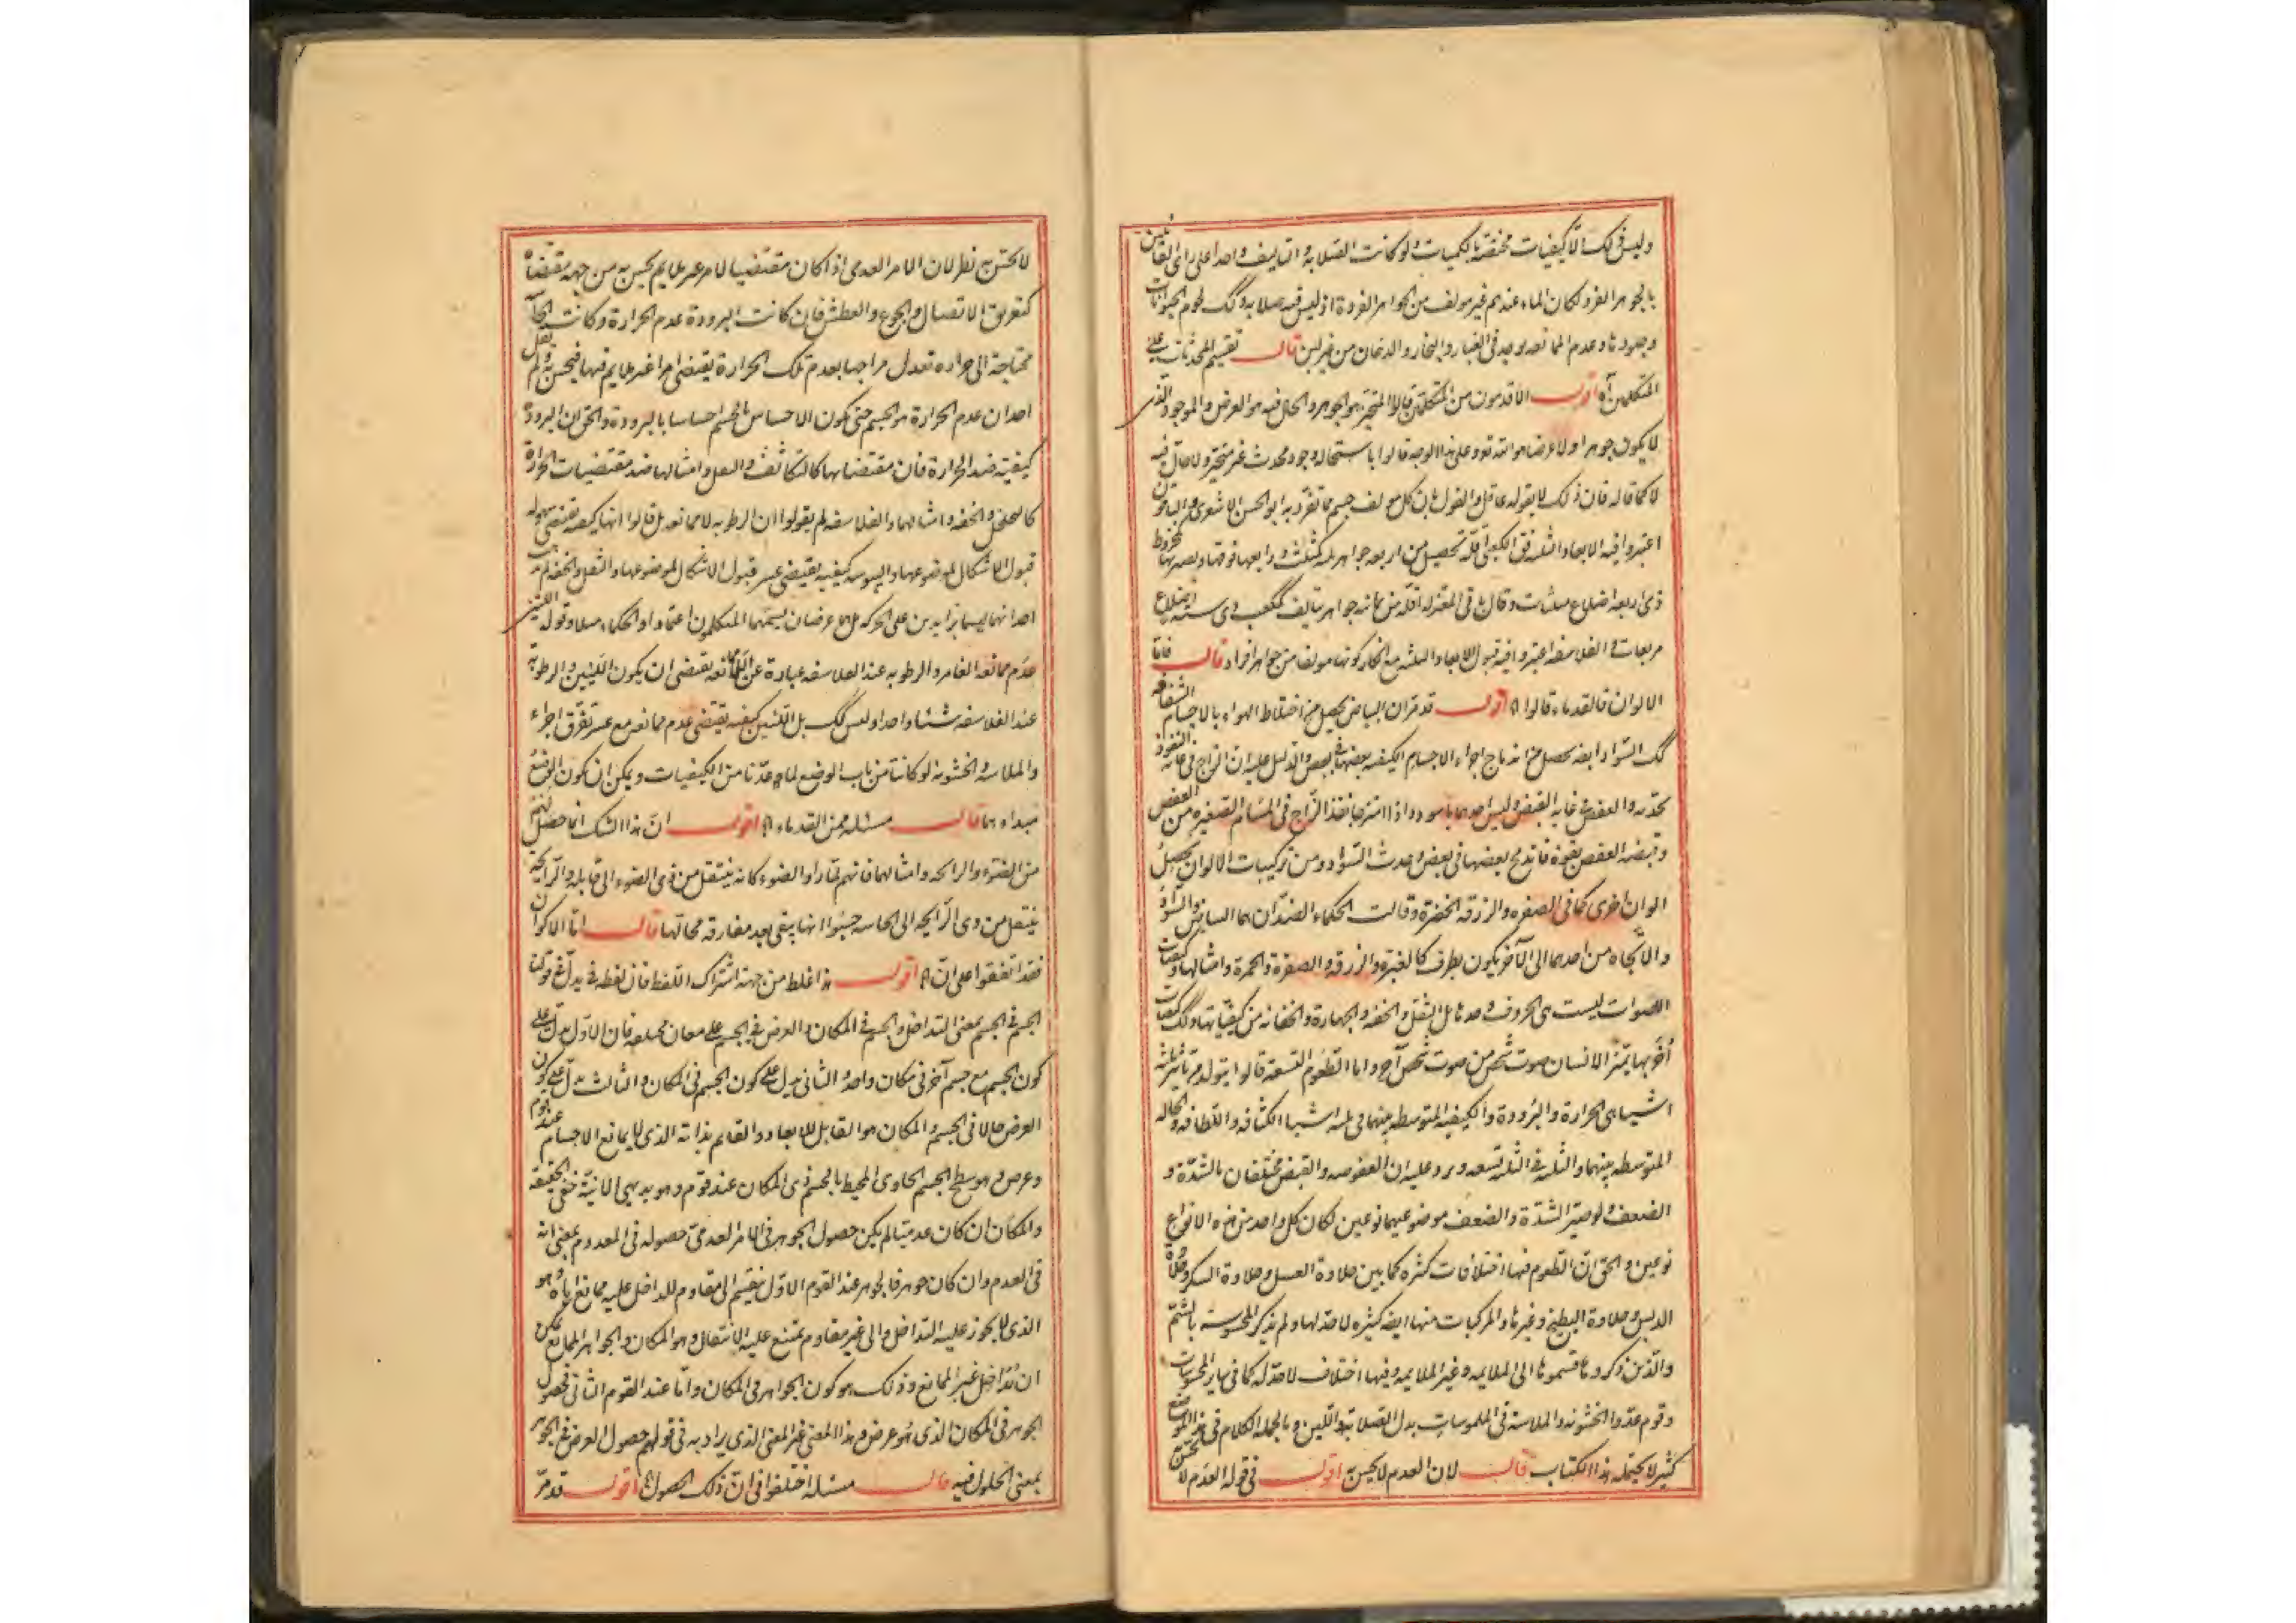 وليس كذلك الا كيفيات مختصة بالكميات ولو كانت الصلابة والتاليف واحدا على راى القائلين
بالجوهر الفرد لكان الماء عندهم غير مولف من الجواهر الفردة اذ ليس فيه صلابة وكك لحوم الحيوانات
وجلودها وعدم الممانعه يوجد فى الغبار والبخار والدخان من غير لين قال تقسيم المحدثات على
المتكلمين آه اقول الاقدمون من المتكلمين قالوا المتحيز هو الجوهر والحال فيه هو العرض والموجود الذى
لا يكون جوهرا ولا عرضا هو الله تعو وعلى هذا الوجه قالوا باستحاله وجود محدث غير متحيز ولا حال فيه
لا كما قاله فان ذلك لا يقوله عاقل والقول بان كل مولف جسم مما تفرد به ابو الحسن الاشعرى والباقون
اعتبروا فيه الابعاد الثلثه فق الكعبى اقله تحصيل من اربعه جواهر ثلثه كمثلث ورابعها فوقها ويصير بها كمخروط
ذى اربعه اضلاع مثلثات وقال باقى المعتزله اقله من ثمانيه جواهر يتالف كمكعب ذى سته اضلاع
مربعات والفلاسفه اعتبروا فيه قبول الابعاد الثلثه مع انكار كونها مولفا من جواهر افراد قال فاما
الالوان فالقدماء قالوا آه اقول قد مر ان البياض يحصل من اختلاط الهواء بالاجسام الشفافه
كك السواد ايضه يحصل من اندماج اجزاء الاجسام الكثيفه بعضها فى بعض والدليل عليه ان الزاج فى غايه النفوذ
لحدته والعفص فى غايه القبض وليس احدهما باسود واذا امتزجا نفذ الزاج فى المسام الصغيره من العفص
وقبضه العفص بقوة فاندمج بعضها فى بعض وحدث السواد ومن تركيبات الالوان يحصل
الوان اخرى كما فى الصفره والزرقه الخضرة وقالت الحكماء الضدان هما البياض والسواد
والاتجاه من احدهما الى الآخر يكون بطرق كالغبرة والزرقه والصفرة والحمرة وامثالها وكيفيات
الاصوات ليست هى الحروف وحدها بل الثقل والخفه والجهارة والخفاته من كيفياتها وكك كيفيات
أخر بها يتميز الانسان صوت شخص من صوت شخص آخر واما الطعوم التسعة قالوا يتولد من تاثير ثلثه
اشيا هى الحرارة والبرودة والكيفيه المتوسطه بينهما فى ثلثه اشيا الكثافه واللطافه والحاله
المتوسطه بينهما والثلثه فى الثلثه تسعه ويرد عليه ان العفوصه والقبض مختلفان بالشدة و
الضعف ولو صيّر الشدة والضعف موضوعيهما نوعين لكان كل واحد من هذه الانواع
نوعين والحق ان الطعوم فيها اختلافات كثيره كما بين حلاوة العسل وحلاوة السكر وحلاوة
الدبس وحلاوة البطيخ وغيرها والمركبات منها ايضه كثيره لا حد لها ولم يذكر المحسوسة بالشم
والذين ذكروها قسموها الى الملايمه وغير الملايمه وفيها اختلاف لا حد له كما فى ساير المحسوسات
وقوم عدوا الخشونه والملاسة فى الملموسات بدل الصلابة واللين وبالجمله الكلام فى هذا الموضع
كثير لا يحتمله هذا الكتاب قال لان العدم لا يحس به اقول فى قوله العدم لا
لا يحس به نظر لان الامر العدمى اذا كان مقتضيا لامر غير ملايم يحس به من جهه مقتضاه
كتفريق الاتصال والجوع والعطش فان كانت البرودة عدم الحرارة وكانت
محتاجة الى حراره تعدل مزاجها بعدم تلك الحرارة يقتضى امرا غير ملايم فيها فيحس به ولم يقل
احد ان عدم الحرارة هو الجسم حتى يكون الاحساس بالجسم احساسا بالبرودة والحق ان البرودة
كيفية ضد الحرارة فان مقتضياتها كالتكاثف والثقل وامثالها ضد مقتضيات الحرارة
كالتخلخل والخفه وامثالهما والفلاسفه لم يقولوا ان الرطوبه لا ممانعه بل قالوا انها كيفيه يقتضى سهوله
قبول الاشكال لموضوعها واليبوسه كيفيه يقتضى عسر قبول الاشكال لموضوعها والثقل والخفه لم يقل
احد انهما ليسا بزايدين على الحركه بل هما عرضان يسميهما المتكلمون اعتمادا والحكماء ميلا وقوله اللين
عدم ممانعه الغامز والرطوبه عند الفلاسفه عبارة عن اللاممانعه يقتضى ان يكون اللين والرطوبة
عند الفلاسفه شيئا واحدا وليس كك بل اللين كيفيه يقتضى عدم ممانعه مع عسر تفرق اجزاء
والملاسة والخشونه لو كانتا من باب الوضع لما عدّتا من الكيفيات ويمكن ان يكون الوضع
مبداهما قال مسئله من القدماء آه اقول ان هذا الشك انما حصل لهم
من الضوء والرائحه وامثالهما فانهم تجدوا الضوء كانه ينتقل من ذى الضوء الى قابله والرايحة
ينتقل من ذى الرايحه الى الحاسه حسبوا انها يبقى بعد مفارقه محالها قال اما الاكوان
فقد اتفقوا على ان آه اقول هذا غلط من جهة اشتراك اللفظ فان لفظه فى يدل فى قولنا
الجسم فى الجسم بمعنى التداخل والجسم فى المكان والعرض فى الجسم على معان مختلفه فان الاول يدل على
كون الجسم مع جسم آخر فى مكان واحد والثانى يدل على كون الجسم فى المكان والثالث يدل على كون
العرض حالا فى الجسم والمكان هو القابل للابعاد والقايم بذاته الذى لا يمانع الاجسام عند قوم
وعرض هو سطح الجسم الحاوى المحيط بالجسم ذى المكان عند قوم وهو بديهى الانية خفى الحقيقه
والمكان ان كان عدميا لم يكن حصول الجوهر فى الامر العدمى حصوله فى المعدوم بمعنى انه
فى العدم وان كان جوهرا فالجوهر عند القوم الاول ينقسم الى مقاوم للداخل عليه ممانع اياه وهو
الذى لا يجوز عليه التداخل والى غير مقاوم يمتنع عليه الانتقال وهو المكان والجواهر الممانع يمكن
ان تداخل غير الممانع وذلك هو كون الجواهر فى المكان واما عند القوم الثانى فحصول
الجوهر فى المكان الذى هو عرض وهذا المعنى غير المعنى الذى يراد به فى قولهم حصول العرض فى الجوهر
بمعنى الحلول فيه قال مسئله اختلفوا فى ان ذلك الحصول آه اقول قد مر